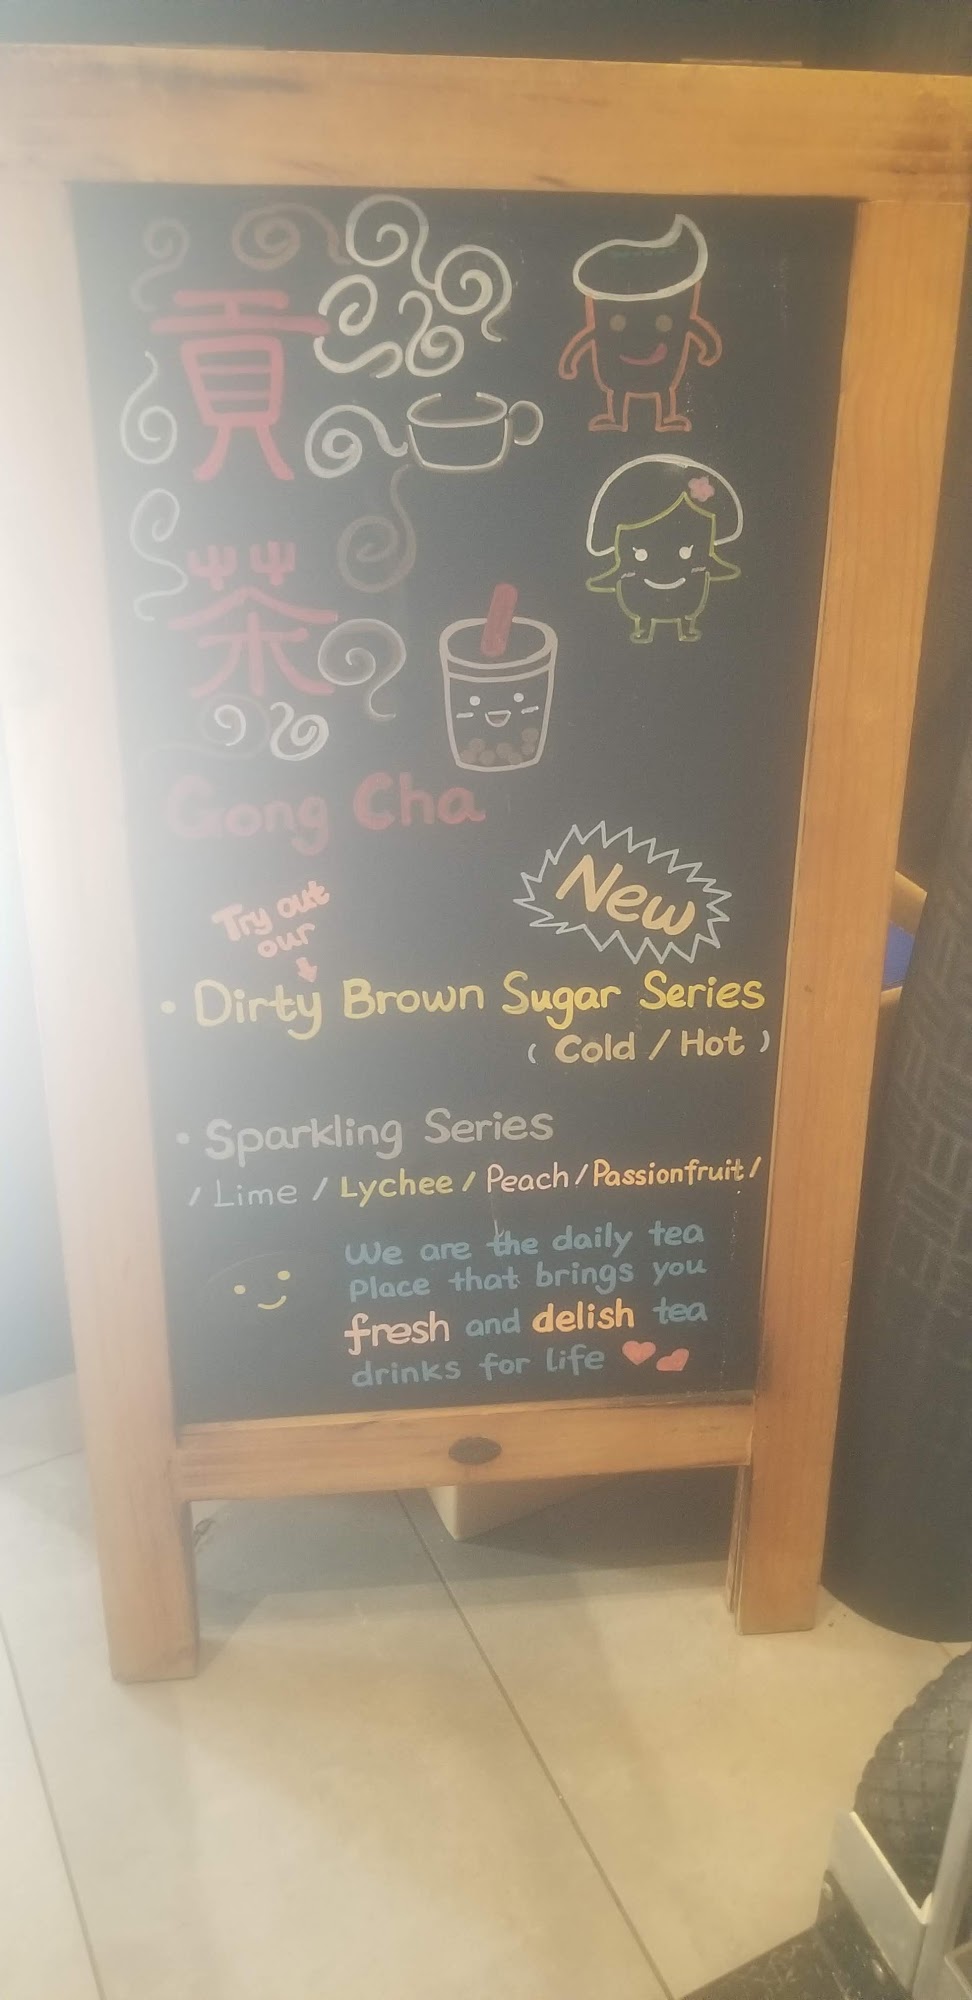 貢
茶
Gong Cha
New
Try out
our
• Dirty Brown Sugar Series
( Cold / Hot )
• Sparkling Series
/ Lime / Lychee / Peach / Passionfruit /
We are the daily tea
Place that brings you
fresh and delish tea
drinks for life